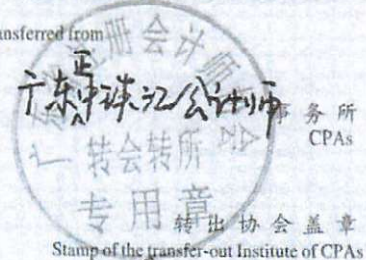 ansferred from
广东正中珠江会计师事务所
CPAs
册会计师
转会转所
专用章
转出协会盖章
Stamp of the transfer-out Institute of CPAs